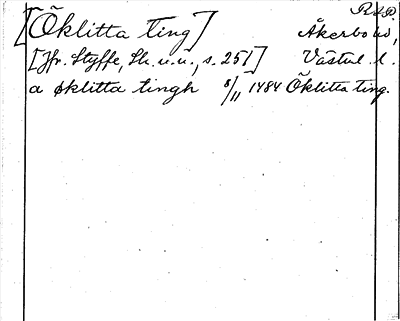 [Öklitta ting]
Åkerbo hd,
[Jfr. Styffe, Sk. u. u., s. 251] Västml. l.
a øklitta tingh 8/11 1484 Öklitta ting.